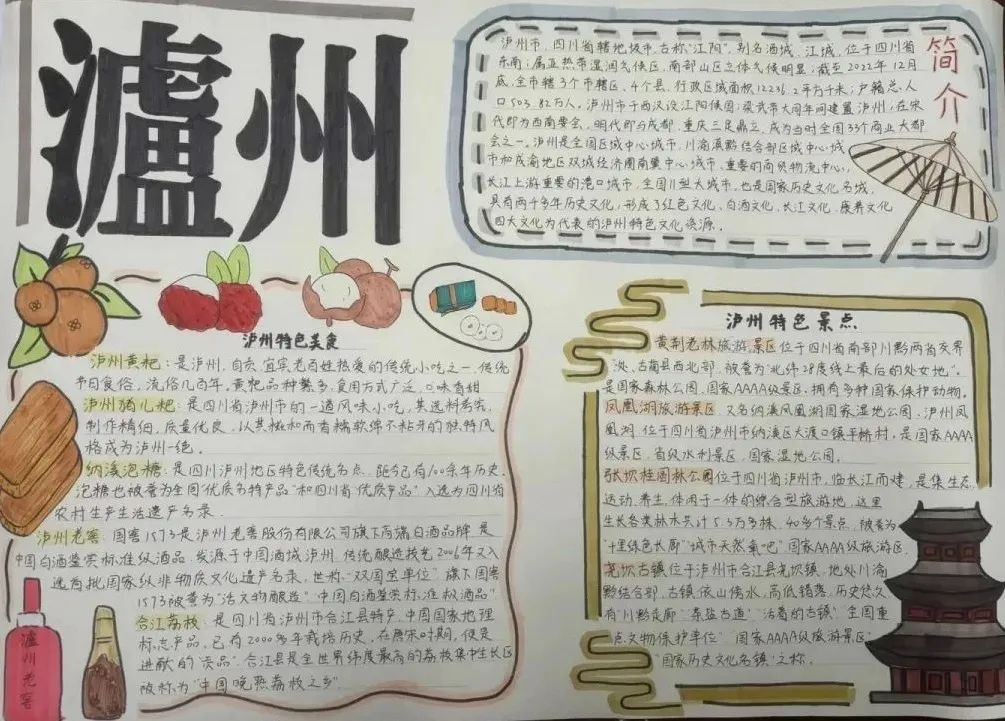 泸州
简介
泸州市，四川省辖地级市，古称"江阳"，别名酒城、江城，位于四川省
东南；属亚热带湿润气候区，南部山区立体气候明显；截至2022年12月
底，全市辖3个市辖区、4个县，行政区域面积12236.2平方千米；户籍总人
口503.82万人。泸州市于西汉设江阳侯国；梁武帝大同年间建置泸州；在宋
代即为西南要会，明代即与成都、重庆三足鼎立，成为当时全国33个商业大都
会之一。泸州是全国区域中心城市，川渝滇黔结合部区域中心城
市和成渝地区双城经济圈南翼中心城市、重要的商贸物流中心，
长江上游重要的港口城市，全国Ⅱ型大城市，也是国家历史文化名城，
具有两千多年历史文化，形成了红色文化、白酒文化、长江文化、康养文化
四大文化为代表的泸州特色文化资源。
泸州特色美食
泸州黄粑：是泸州、自贡、宜宾老百姓热爱的传统小吃之一，传统
节日食俗，流俗几百年，黄粑品种繁多，食用方式广泛，口味香甜
泸州猪儿粑：是四川省泸州市的一道风味小吃，其选料考究，
制作精细，质量优良，以其糍和而香糯软绵不粘牙的独特风
格成为泸州一绝。
纳溪泡糖：是四川泸州地区特色传统名点，距今已有100余年历史，
泡糖也被誉为全国"优质名特产品"和四川省"优质产品"入选为四川省
农村生产生活遗产名录
泸州老窖：国窖1573是泸州老窖股份有限公司旗下高端白酒品牌，是
中国白酒鉴赏标准级酒品，发源于中国酒城泸州，传统酿造技艺2006年又入
选首批国家级非物质文化遗产名录，世称"双国宝单位"旗下国窖
1573被誉为"活文物酿造""中国白酒鉴赏标准级酒品"
合江荔枝：是四川省泸州市合江县特产，中国国家地理
标志产品，已有2000多年栽培历史，在唐宋时期，便是
进献的"贡品"，合江县是全世界纬度最高的荔枝集中生长区
被称为"中国晚熟荔枝之乡"
泸州老窖
泸州特色景点
黄荆老林旅游景区位于四川省南部川黔两省交界
处，古蔺县西北部，被誉为"北纬28度线上最后的处女地"，
是国家森林公园、国家AAAA级景区，拥有多种国家保护动物。
凤凰湖旅游景区，又名纳溪凤凰湖国家湿地公园、泸州凤
凰湖，位于四川省泸州市纳溪区大渡口镇平桥村，是国家AAAA
级景区、省级水利景区、国家湿地公园。
张坝桂圆林公园位于四川省泸州市，临长江而建，是集生态、
运动、养生、休闲于一体的综合型旅游地，这里
生长各类林木共计5.5万多株，40多个景点，被誉为
"十里绿色长廊""城市天然氧吧"国家AAAA级旅游区。
尧坝古镇位于泸州市合江县尧坝镇，地处川渝
黔结合部，古镇依山傍水，高低错落，历史悠久
有"川黔走廊""茶盐古道""活着的古镇"全国重
点文物保护单位"国家AAAA级旅游景区"
"国家历史文化名镇"之称。